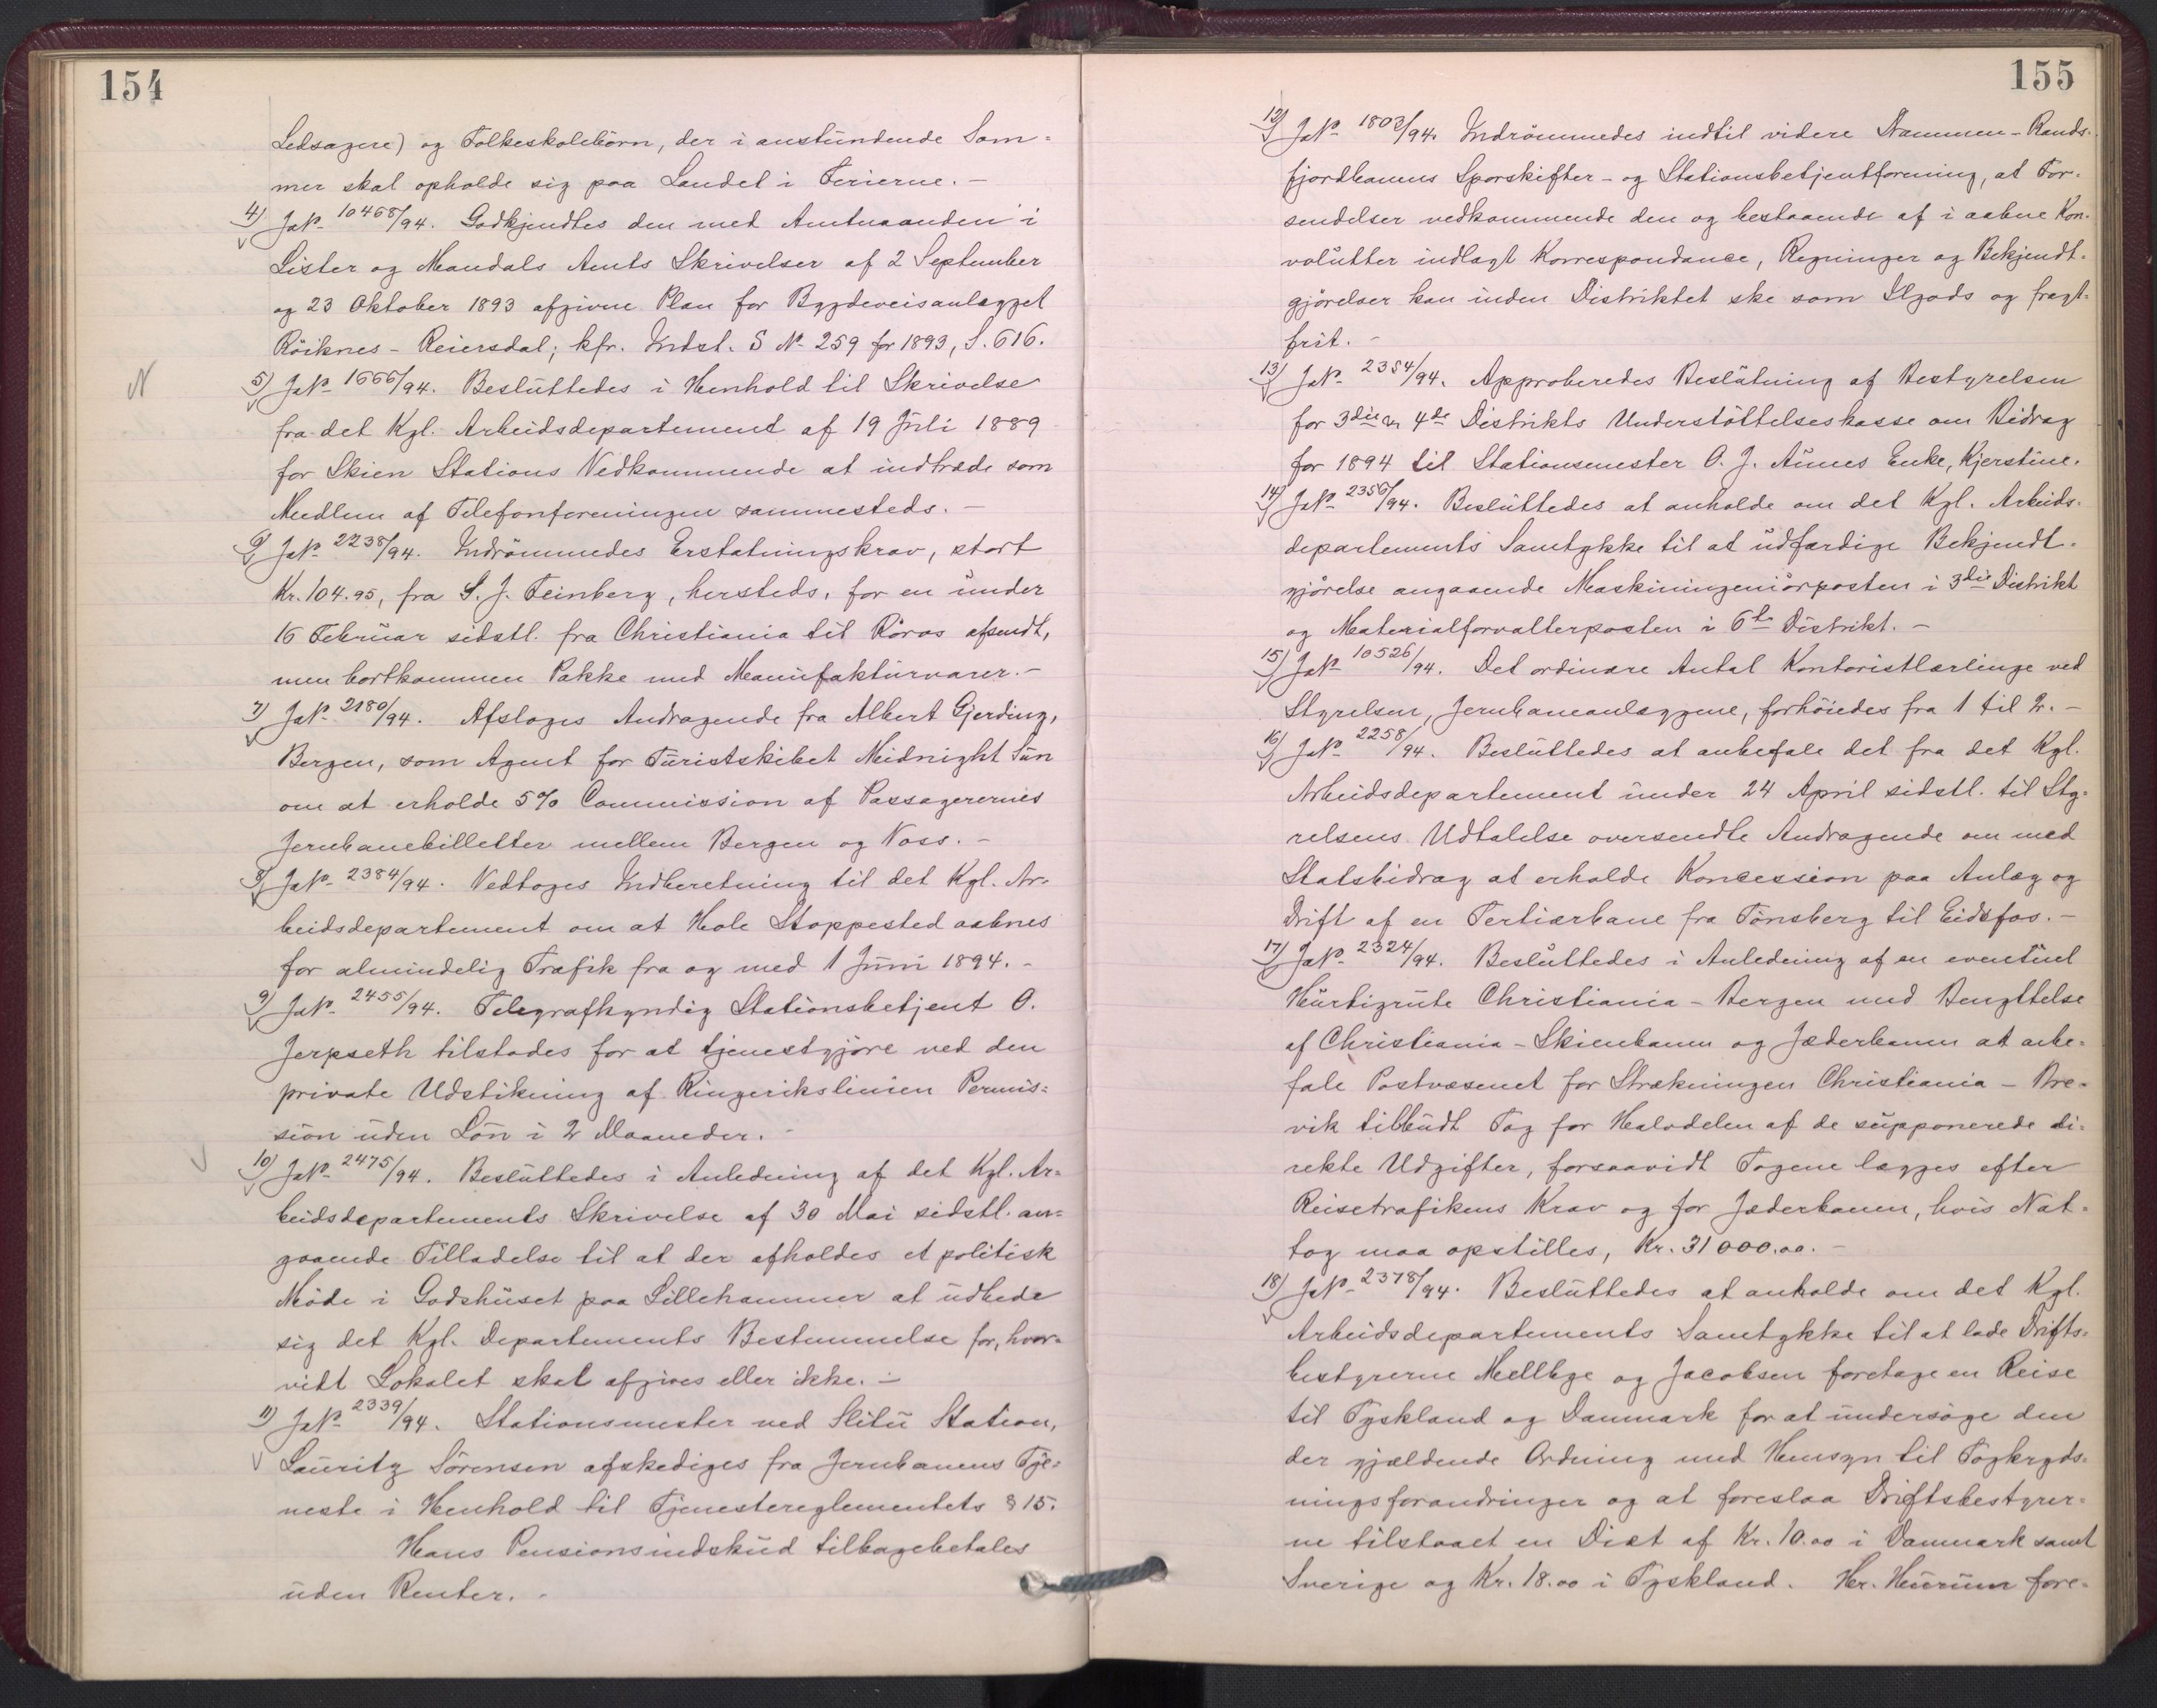 154
Ledsagere) og Folkeskolebörn, der i anstundende Som=
mer skal opholde sig paa Landet i Ferierne. –
4) JNo 10468/94. Godkjendtes den med Amtmanden i
Lister og Mandals Amts Skrivelser af 2 September
og 23 Oktober 1893 afgivne Plan for Bygdeveisanlægget
Röiknes – Reiersdal; kfr. Indst. S No 259 for 1893, S. 616.
N
5) JNo 1666/94. Besluttedes i Henhold til Skrivelse
fra det Kgl. Arbeidsdepartement af 19 Juli 1889
for Skien Stations Vedkommende at indtræde som
Medlem af Telefonforeningen sammesteds. –
6) JNo 2238/94. Indrömmedes Erstatningskrav, stort
Kr. 104.95, fra S. J. Feinberg, hersteds, for en under
16 Februar sidstl. fra Christiania til Röros afsendt,
men bortkommen Pakke med Manufakturvarer. –
7) JNo 2180/94. Afsloges Andragende fra Albert Gjerding,
Bergen, som Agent for Turistskibet Midnight Sun
om at erholde 5% Commission af Passagerernes
Jernbanebilletter mellem Bergen og Voss. –
8) JNo 2384/94. Vedtoges Indberetning til det Kgl. Ar=
beidsdepartement om at Hole Stoppested aabnes
for almindelig Trafik fra og med 1 Juni 1894. –
9) JNo 2455/94. Telegrafkyndig Stationsbetjent O.
Jerpseth tilstodes for at tjenestgjöre ved den
private Udstikning af Ringerikslinien Permis=
sion uden Lön i 2 Maaneder. –
10) JNo 2475/94. Besluttedes i Anledning af det Kgl. Ar=
beidsdepartements Skrivelse af 30 Mai sidstl. an=
gaaende Tilladelse til at der afholdes et politisk
Möde i Godshuset paa Lillehammer at udbede
sig det Kgl. Departements Bestemmelse for, hvor=
vidt Lokalet skal afgives eller ikke. –
11) JNo 2339/94. Stationsmester ved Slitu Station,
Lauritz Sörensen afskediges fra Jernbanens Tje=
neste i Henhold til Tjenestereglementets § 15.
Hans Pensionsindskud tilbagebetales
uden Renter. –
155
12) JNo 1803/94. Indrömmedes indtil videre Drammen – Rands=
fjordbanens Sporskifter- og Stationsbetjentforening, at For=
sendelser vedkommende den og bestaaende af i aabne Kon=
volutter indlagt Korrespondance, Regninger og Bekjendt=
gjörelser kan inden Distriktet ske som Ilgods og fragt=
frit. –
13) JNo 2354/94. Approberedes Beslutning af Bestyrelsen
for 3die og 4de Distrikts Understöttelseskasse om Bidrag
for 1894 til Stationsmester O. J. Aunes Enke, Kjerstine.
14) JNo 2356/94. Besluttedes at anholde om det Kgl. Arbeids=
departements Samtykke til at udfærdige Bekjendt=
gjörelse angaaende Maskiningeniörposten i 3die Distrikt
og Materialforvalterposten i 6te Distrikt. –
15) JNo 10526/94. Det ordinære Antal Kontoristlærlinge ved
Styrelsen, Jernbaneanlæggene, forhöiedes fra 1 til 2. –
16) JNo 2258/94. Besluttedes at anbefale det fra det Kgl.
Arbeidsdepartement under 24 April sidstl. til Sty=
relsens Udtalelse oversendte Andragende om med
Statsbidrag at erholde Koncession paa Anlæg og
Drift af en Tertiærbane fra Tönsberg til Eidsfos. –
17) JNo 2324/94. Besluttedes i Anledning af en eventuel
Hurtigrute Christiania – Bergen med Benyttelse
af Christiania – Skienbanen og Jæderbanen at anbe=
fale Postvæsenet for Strækningen Christiania – Bre=
vik tilbudt Tog for Halvdelen af de supponerede di=
rekte Udgifter, forsaavidt Togene lægges efter
Reisetrafikens Krav og for Jæderbanen, hvis Nat=
tog maa opstilles, Kr. 31000.00. –
18) JNo 2378/94. Besluttedes at anholde om det Kgl.
Arbeidsdepartements Samtykke til at lade Drifts=
bestyrerne Mellbye og Jacobsen foretage en Reise
til Tyskland og Danmark for at undersöge den
der gjældende Ordning med Hensyn til Togkryds=
ningsforandringer og at foreslaa Driftsbestyrer=
ne tilstaaet en Diæt af Kr. 10.00 i Danmark samt
Sverige og Kr. 18.00 i Tyskland. Hr. Heurum fore=